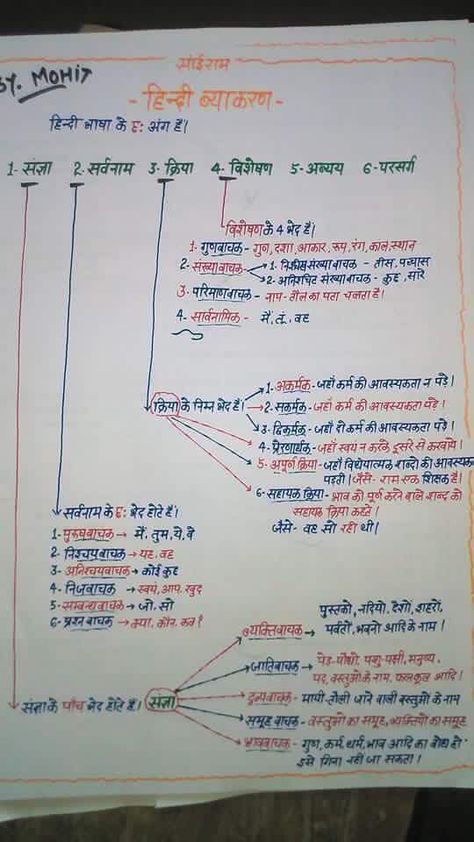 साईराम
BY. MOHIT
- हिन्दी व्याकरण -
हिन्दी भाषा के छः अंग है।
1- संज्ञा 2- सर्वनाम 3- क्रिया 4- विशेषण 5- अव्यय 6- परसर्ग
विशेषण के 4 भेद है।
1- गुणवाचक - गुण, दशा, आकार, रूप, रंग, काल, स्थान
2- संख्यावाचक
1- निश्चित संख्या वाचक - तीस, पच्चास
2- अनिश्चित संख्या वाचक - कुछ, सारे
3- परिमाणवाचक - नाप-तौल का पता चलता है।
4- सार्वनामिक - मैं, तू, वह
क्रिया के निम्न भेद है।
1- अकर्मक - जहाँ कर्म की आवस्यकता न पड़े।
2- सकर्मक - जहाँ कर्म की आवस्यकता पड़े।
3- द्विकर्मक - जहाँ दो कर्म की आवस्यकता पड़े।
4- प्रेरणार्थक - जहाँ स्वयं न करके दूसरे से करवाये।
5- अपूर्ण क्रिया - जहाँ विधेयात्मक शब्दो की आवस्यक
पड़ती। जैसे- राम एक शिक्षक है।
6- सहायक क्रिया - भाव को पूर्ण करने वाले शब्द को
सहायक क्रिया कहते।
जैसे- वह सो रही थी।
सर्वनाम के छः भेद होते है।
1- पुरुषवाचक → मैं, तुम, ये, वे
2- निश्चयवाचक → यह, वह
3- अनिश्चयवाचक → कोई कुछ
4- निजवाचक → स्वयं, आप, खुद
5- सम्बन्धवाचक → जो, सो
6- प्रश्नवाचक → क्या, कौन, कब?
संज्ञा के पाँच भेद होते है। संज्ञा
व्यक्तिवाचक → पुस्तको, नदियो, देशो, शहरो,
पर्वतो, भवनो आदि के नाम।
जातिवाचक → पेड़-पौधो, पशु-पक्षी, मनुष्य,
पद, वस्तुओ के नाम, फलफूल आदि।
द्रव्यवाचक - मापी-तौली जाने वाली वस्तुओ के नाम
समूह वाचक - वस्तुओ का समूह, व्यक्तियो का समूह
भाववाचक - गुण, कर्म, धर्म, भाव आदि का बोध हो
इसे गिना नही जा सकता।